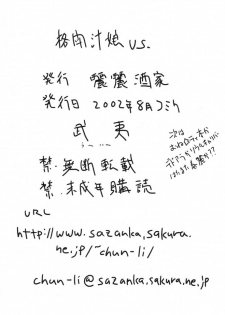 格闘汁娘 vs.
発行 囉囉酒家
発行日 2002年8月コミケ
武 夷
禁・無断転載
禁・未成年購読
URL
http://www.sazanka.sakura.
ne.jp/~chun-li/
chun-li@sazanka.sakura.ne.jp
次は